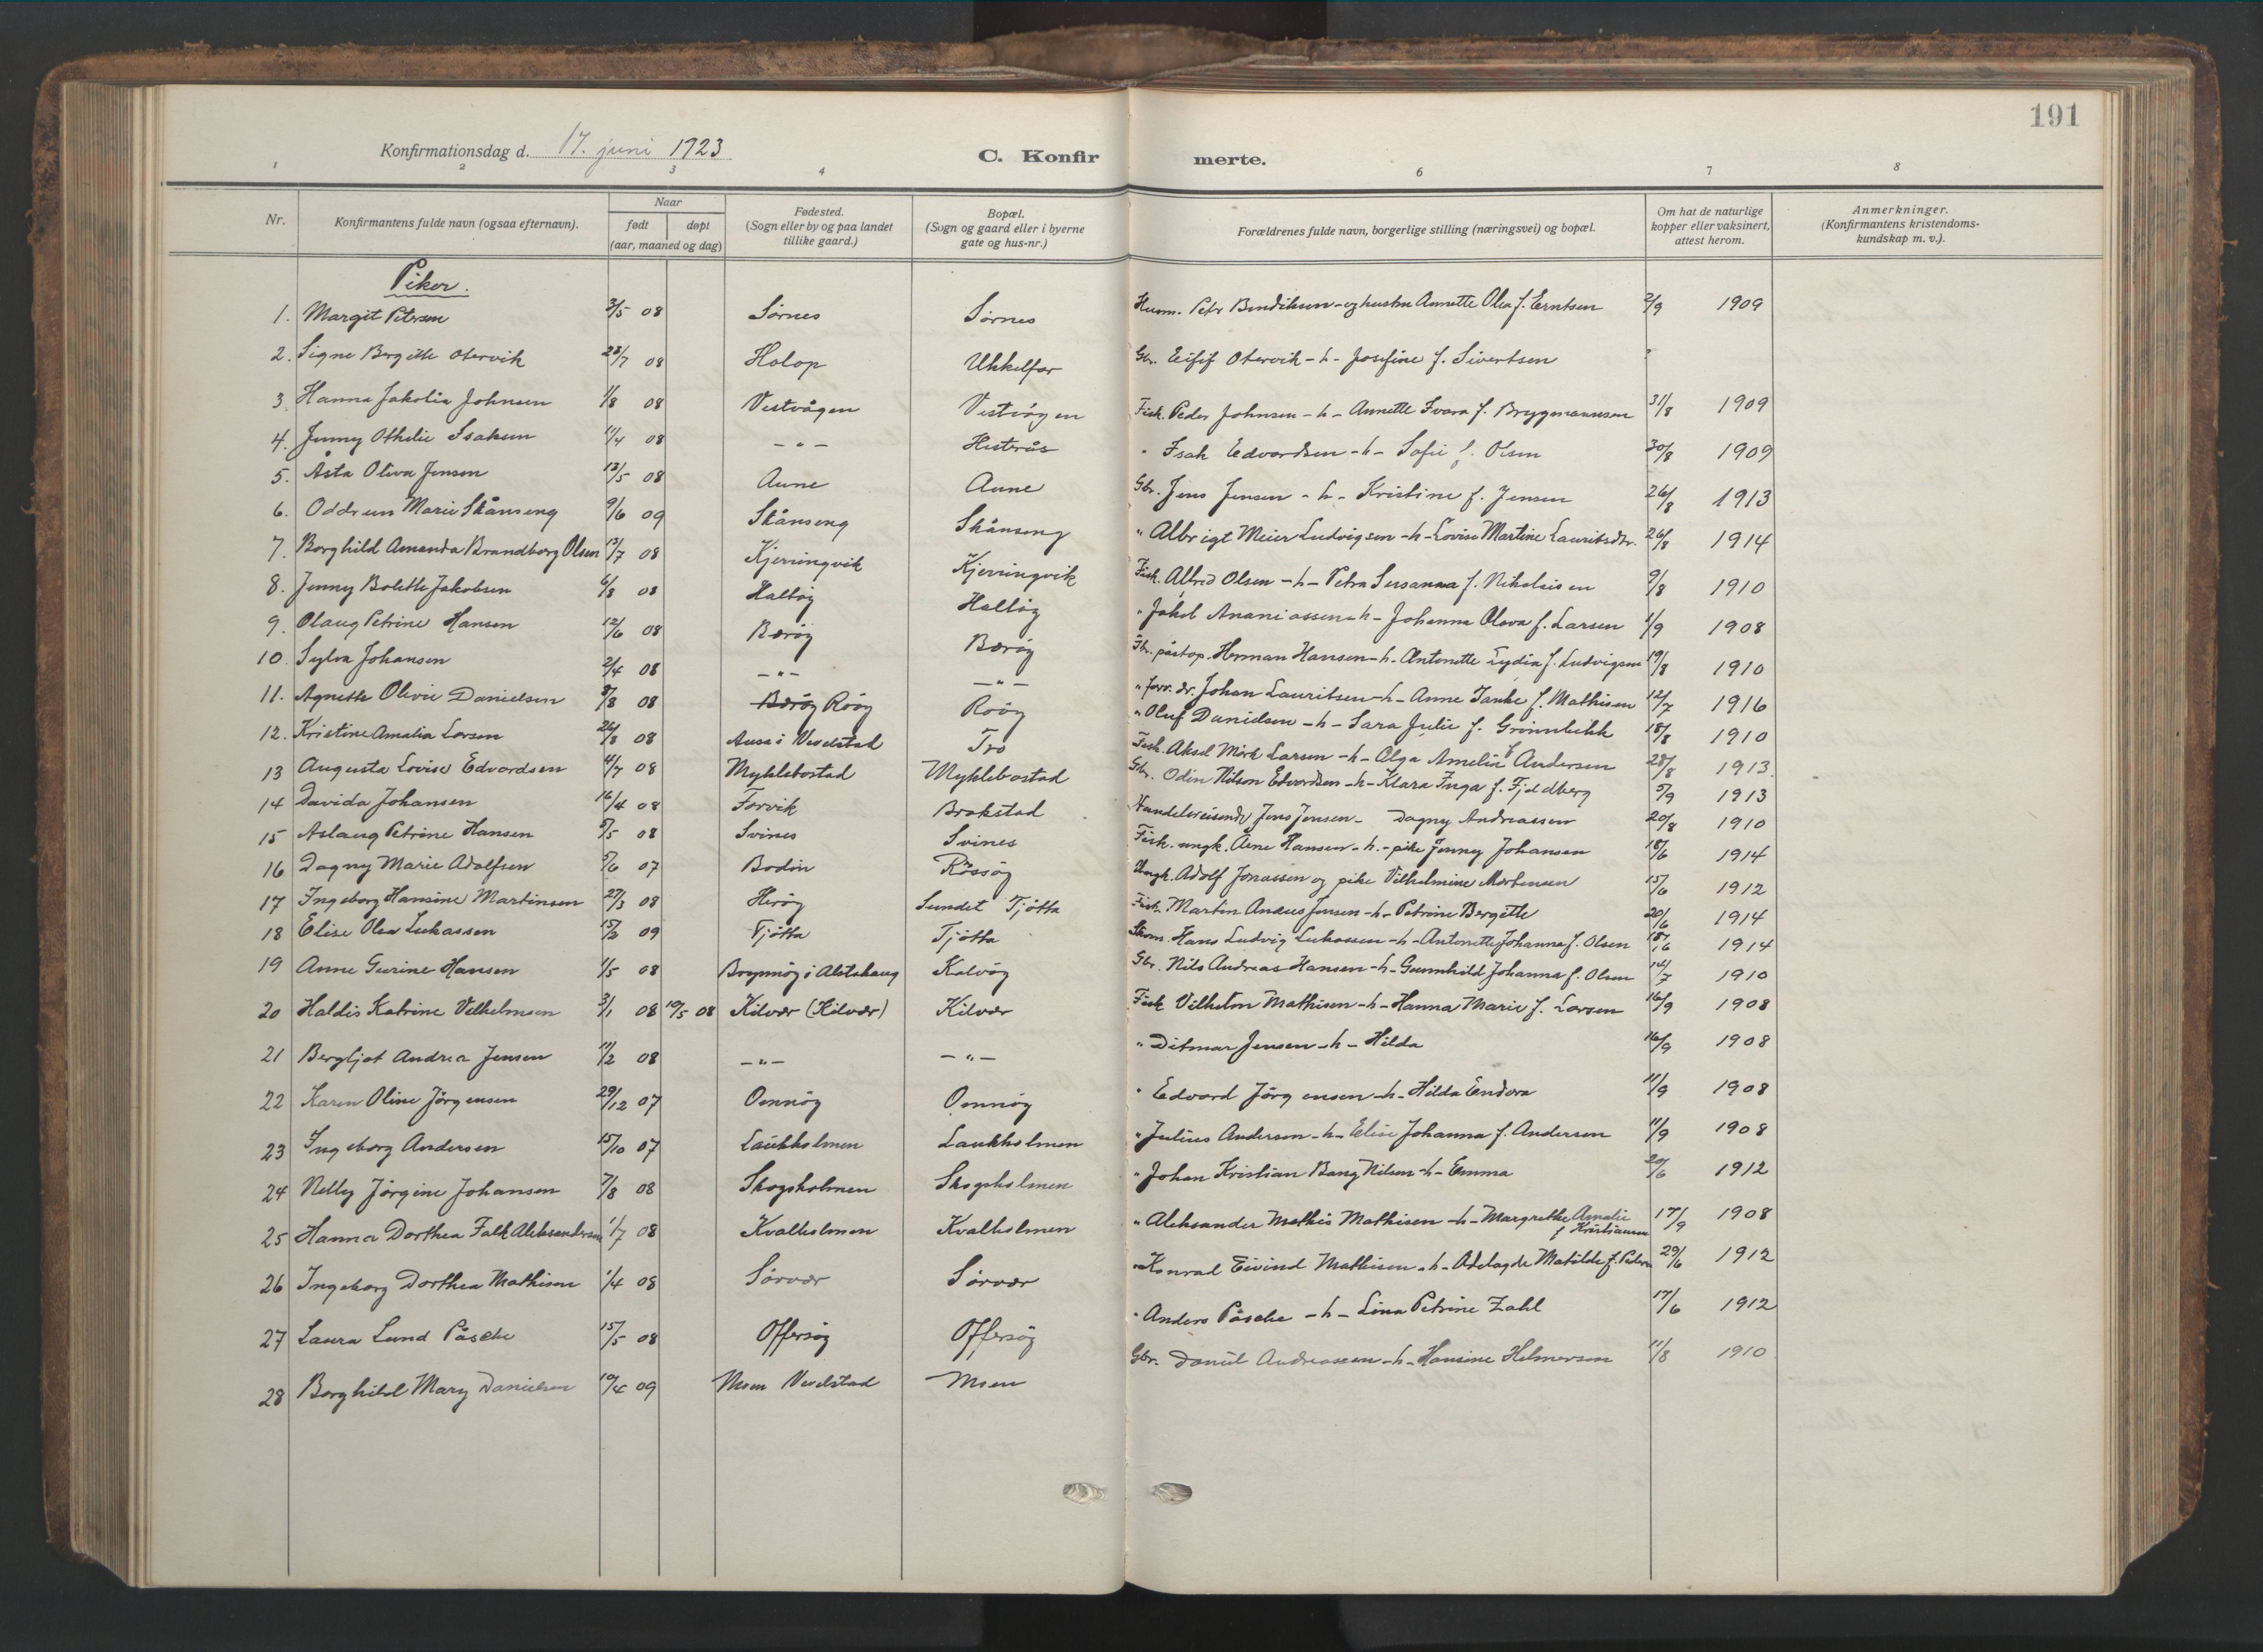 191
Konfirmationsdag d. 17. juni 1923
C. Konfir merte.
1 2 3 4 6 7 8
Nr. Konfirmantens fulde navn (ogsaa efternavn). Naar født døpt (aar, maaned og dag) Fødested. (Sogn eller by og paa landet tillike gaard.) Bopæl. (Sogn og gaard eller i byerne gate og hus-nr.) Forældrenes fulde navn, borgerlige stilling (næringsvei) og bopæl. Om hat de naturlige kopper eller vaksinert, attest herom. Anmerkninger. (Konfirmantens kristendoms- kundskap m. v.).
Piker.
1. Margit Petersen 3/5 08 Sørnes Sørnes Husm. Petr Bendiksen - og hustru Annette Olea f. Erntsen 2/9 1909
2. Signe Bergitte Otervik 28/7 08 Holop Ukkelfar Gbr. Otervik - h - Josefine f. Sivertsen ?
3. Hanna Jakolia Johnsen 1/8 08 Vestvågen Vestvågen Fisk. Peder Johnsen - h - Annette Ivara f. Brygmannsen 31/8 1909
4. Jenny Othelie Isaksen 11/4 08 - " - Husterås " Isak Edvardsen - h - Sofie f. Olsen 30/8 1909
5. Åsta Oliva Jensen 13/5 08 Aune Aune Gbr. Jens Jensen - h - Kristine f. Jensen 26/8 1913
6. Oddrun Marie Skånseng 9/6 09 Skånseng Skånseng " Albrigt Meier Ludvigsen - h - Lovise Martine Lauritsdtr. 26/8 1914
7. Borghild Amanda Brandborg Olsen 13/7 08 Kjerringvik Kjerringvik Fisk. Alfred Olsen - h - Petra Susanna f. Nikolaisen 9/8 1910
8. Jenny Bolette Jakobsen 6/8 08 Haltøy Haltøy " Jakob Ananiassen - h - Johanna Olava f. Larsen 1/9 1908
9. Olaug Petrine Hansen 12/6 08 Bærøy Bærøy Gbr. postop. Herman Hansen - h - Antonette Lydia f. Ludvigsen 19/8 1910
10. Sylva Johansen 2/4 08 - " - - " - " forr. dr. Johan Lauritsen - h - Anne Tanke f. Mathisen 12/7 1916
11. Agnethe Olivie Danielsen 8/8 08 Bærøy Røøy Røøy " Oluf Danielsen - h - Sara Julie f. Grønnbekk 18/8 1910
12. Kristine Amalia Larsen 26/8 08 Ausa i Vevelstad Tro Fisk. Aksel Mörk Larsen - h - Olga Amelia f. Andersen 28/8 1913
13 Augusta Lovise Edvardsen 4/7 08 Myklebostad Myklebostad Gbr. Odin Nilson Edvardsen - h - Klara Inga f. Fjeldberg 5/9 1913
14 Davida Johansen 16/4 08 Forvik Brokstad Handelsreisende Jens Jensen - Dagny Andreassen 20/8 1910
15 Aslaug Petrine Hansen 5/5 08 Svines Svines Fisk. ungk. Arne Hansen - h. - pike Jenny Johansen 18/6 1914
16 Dagny Marie Adolfsen 5/6 07 Bodin Rössøy Ungk. Adolf Jonassen og pike Vilhelmine Mortensen 15/6 1912
17 Ingeborg Hansine Martinsen 27/3 08 Herøy Sundet Tjøtta Fisk. Martin Andreas Jensen - h - Petrine Bergitte 20/6 1914
18 Elise Olea Lukassen 15/2 09 Tjøtta Tjøtta Hans Ludvig Lukassen - h - Antonette Johanna f. Olsen 18/6 1914
19 Anne Gurine Hansen 1/5 08 i Alstahaug Kalvøy Gbr. Nils Andreas Hansen - h - Gunnhild Johanna f. Olsen 14/7 1910
20 Haldis Katrine Vilhelmsen 3/1 08 10/5 08 Kilvær (Kilvær) Kilvær Fisk Vilhelm Mathisen - h - Hanna Marie f. Larsen 16/9 1908
21 Bergljot Andrea Jensen 11/2 08 - " - - " - " Ditmar Jensen - h - Hilda 16/9 1908
22 Karen Oline Jörgensen 29/12 07 Omnøy Omnøy " Edvard Jörgensen - h - Hilda Endora 11/9 1908
23 Ingeborg Andersen 15/10 07 Laukholmen Laukholmen " Julius Andersen - h - Elise Johanna f. Andersen 11/9 1908
24 Nelly Jörgine Johansen 7/8 08 Skogsholmen Skogsholmen " Johan Kristian Bang Nilsen - h - Emma 20/6 1912
25 Hanna Dorthea Falk Aleksandersen 1/7 08 Kvalholmen Kvalholmen " Aleksander Mathis Mathisen - h - Margrethe Amalie f Kristiansen 17/9 1908
26 Ingeborg Dorthea Mathisen 1/4 08 Sørvær Sørvær " Konrad Eivind Mathisen - h - Adelagde Matilde f. Peders 29/6 1912
27 Laura Lund Påsche 15/5 08 Offersøy Offersøy " Anders Påsche - h - Lina Petrine Zahl 17/6 1912
28 Borghild Mary Danielsen 10/4 09 Moen Vevelstad Moen Gbr. Daniel Andreassen - h - Hansine Helmersen 11/8 1910